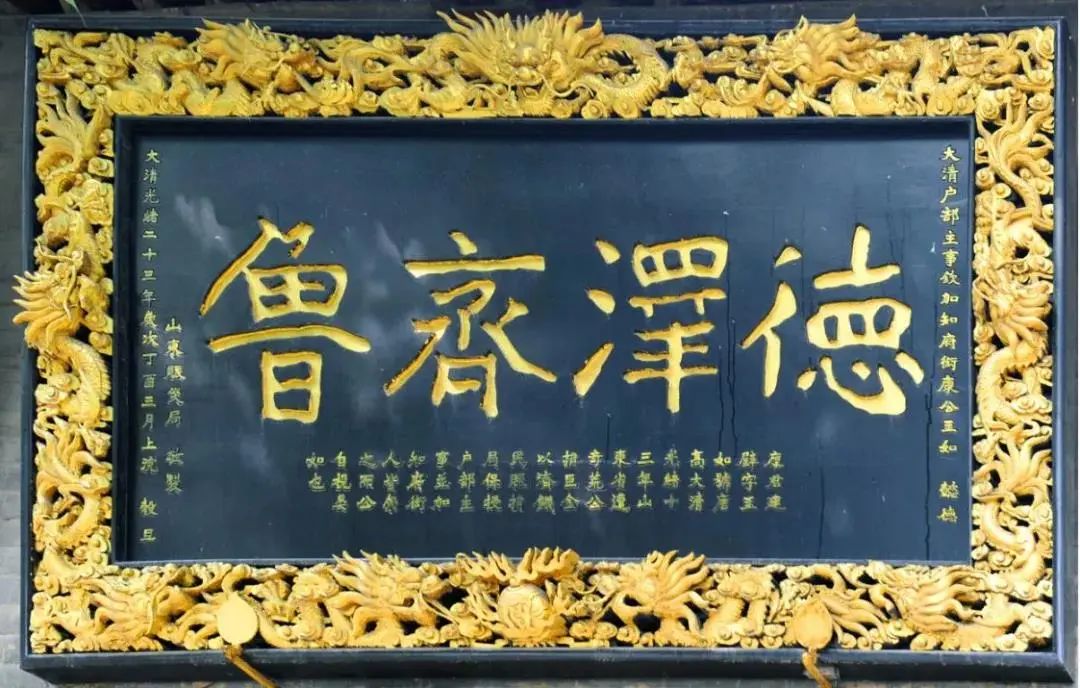 大清户部主事欽加知府銜康公玉如 懿德
德澤齊魯
康君建
壁字玉
如號唐
高大清
光緒十
三年山
東省遭
奇荒公
捐巨金
以濟饑
民賑
局保授
户部主
事並加
知府銜
人皆榮
之而公
自視
如也
山東賑局 敬製
大清光緒二十三年歲次丁酉三月上浣 穀旦